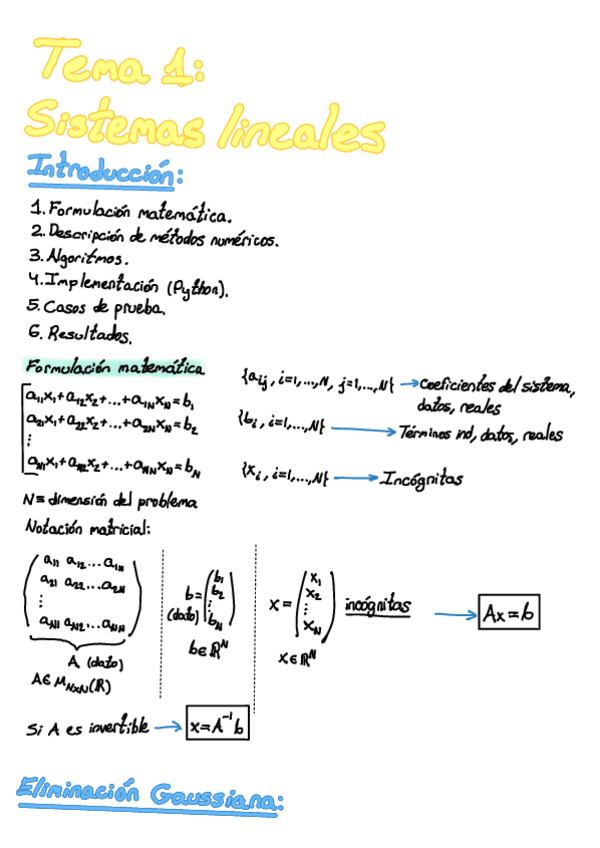 Tema 1:
Sistemas lineales
Introducción:
1. Formulación matemática.
2. Descripción de métodos numéricos.
3. Algoritmos.
4. Implementación (Python).
5. Casos de prueba.
6. Resultados.
Formulación matemática
a₁₁x₁+a₁₂x₂+...+a₁NxN=b₁
a₂₁x₁+a₂₂x₂+...+a₂NxN=b₂
⋮
aN₁x₁+aN₂x₂+...+aNNxN=bN
{aij, i=1,...,N, j=1,...,N} → Coeficientes del sistema,
datos, reales
{bi, i=1,...,N} → Términos ind, datos, reales
{xi, i=1,...,N} → Incógnitas
N≡dimensión del problema
Notación matricial:
a₁₁ a₁₂...a₁N
a₂₁ a₂₂...a₂N
⋮
aN₁ aN₂...aNN
A (dato)
A∈MN×N(ℝ)
b=(b₁ b₂ ⋮ bN)
(dato)
b∈ℝᴺ
x=(x₁ x₂ ⋮ xN) incógnitas
x∈ℝᴺ
→ Ax=b
Si A es invertible → x=A⁻¹b
Eliminación Gaussiana: